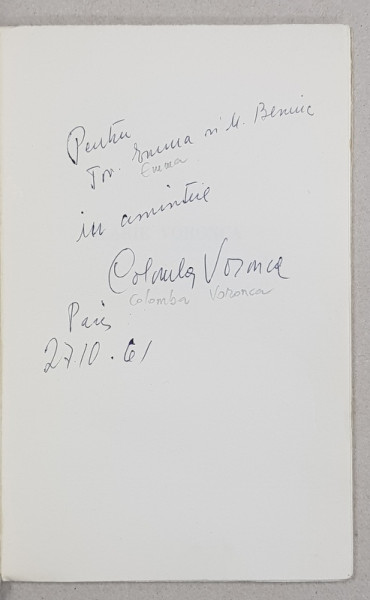 Pentru
Tov. Emma și M. Beniuc
Emma
în amintire
Colomba Voronca
Colomba Voronca
Paris
27 10 . 61